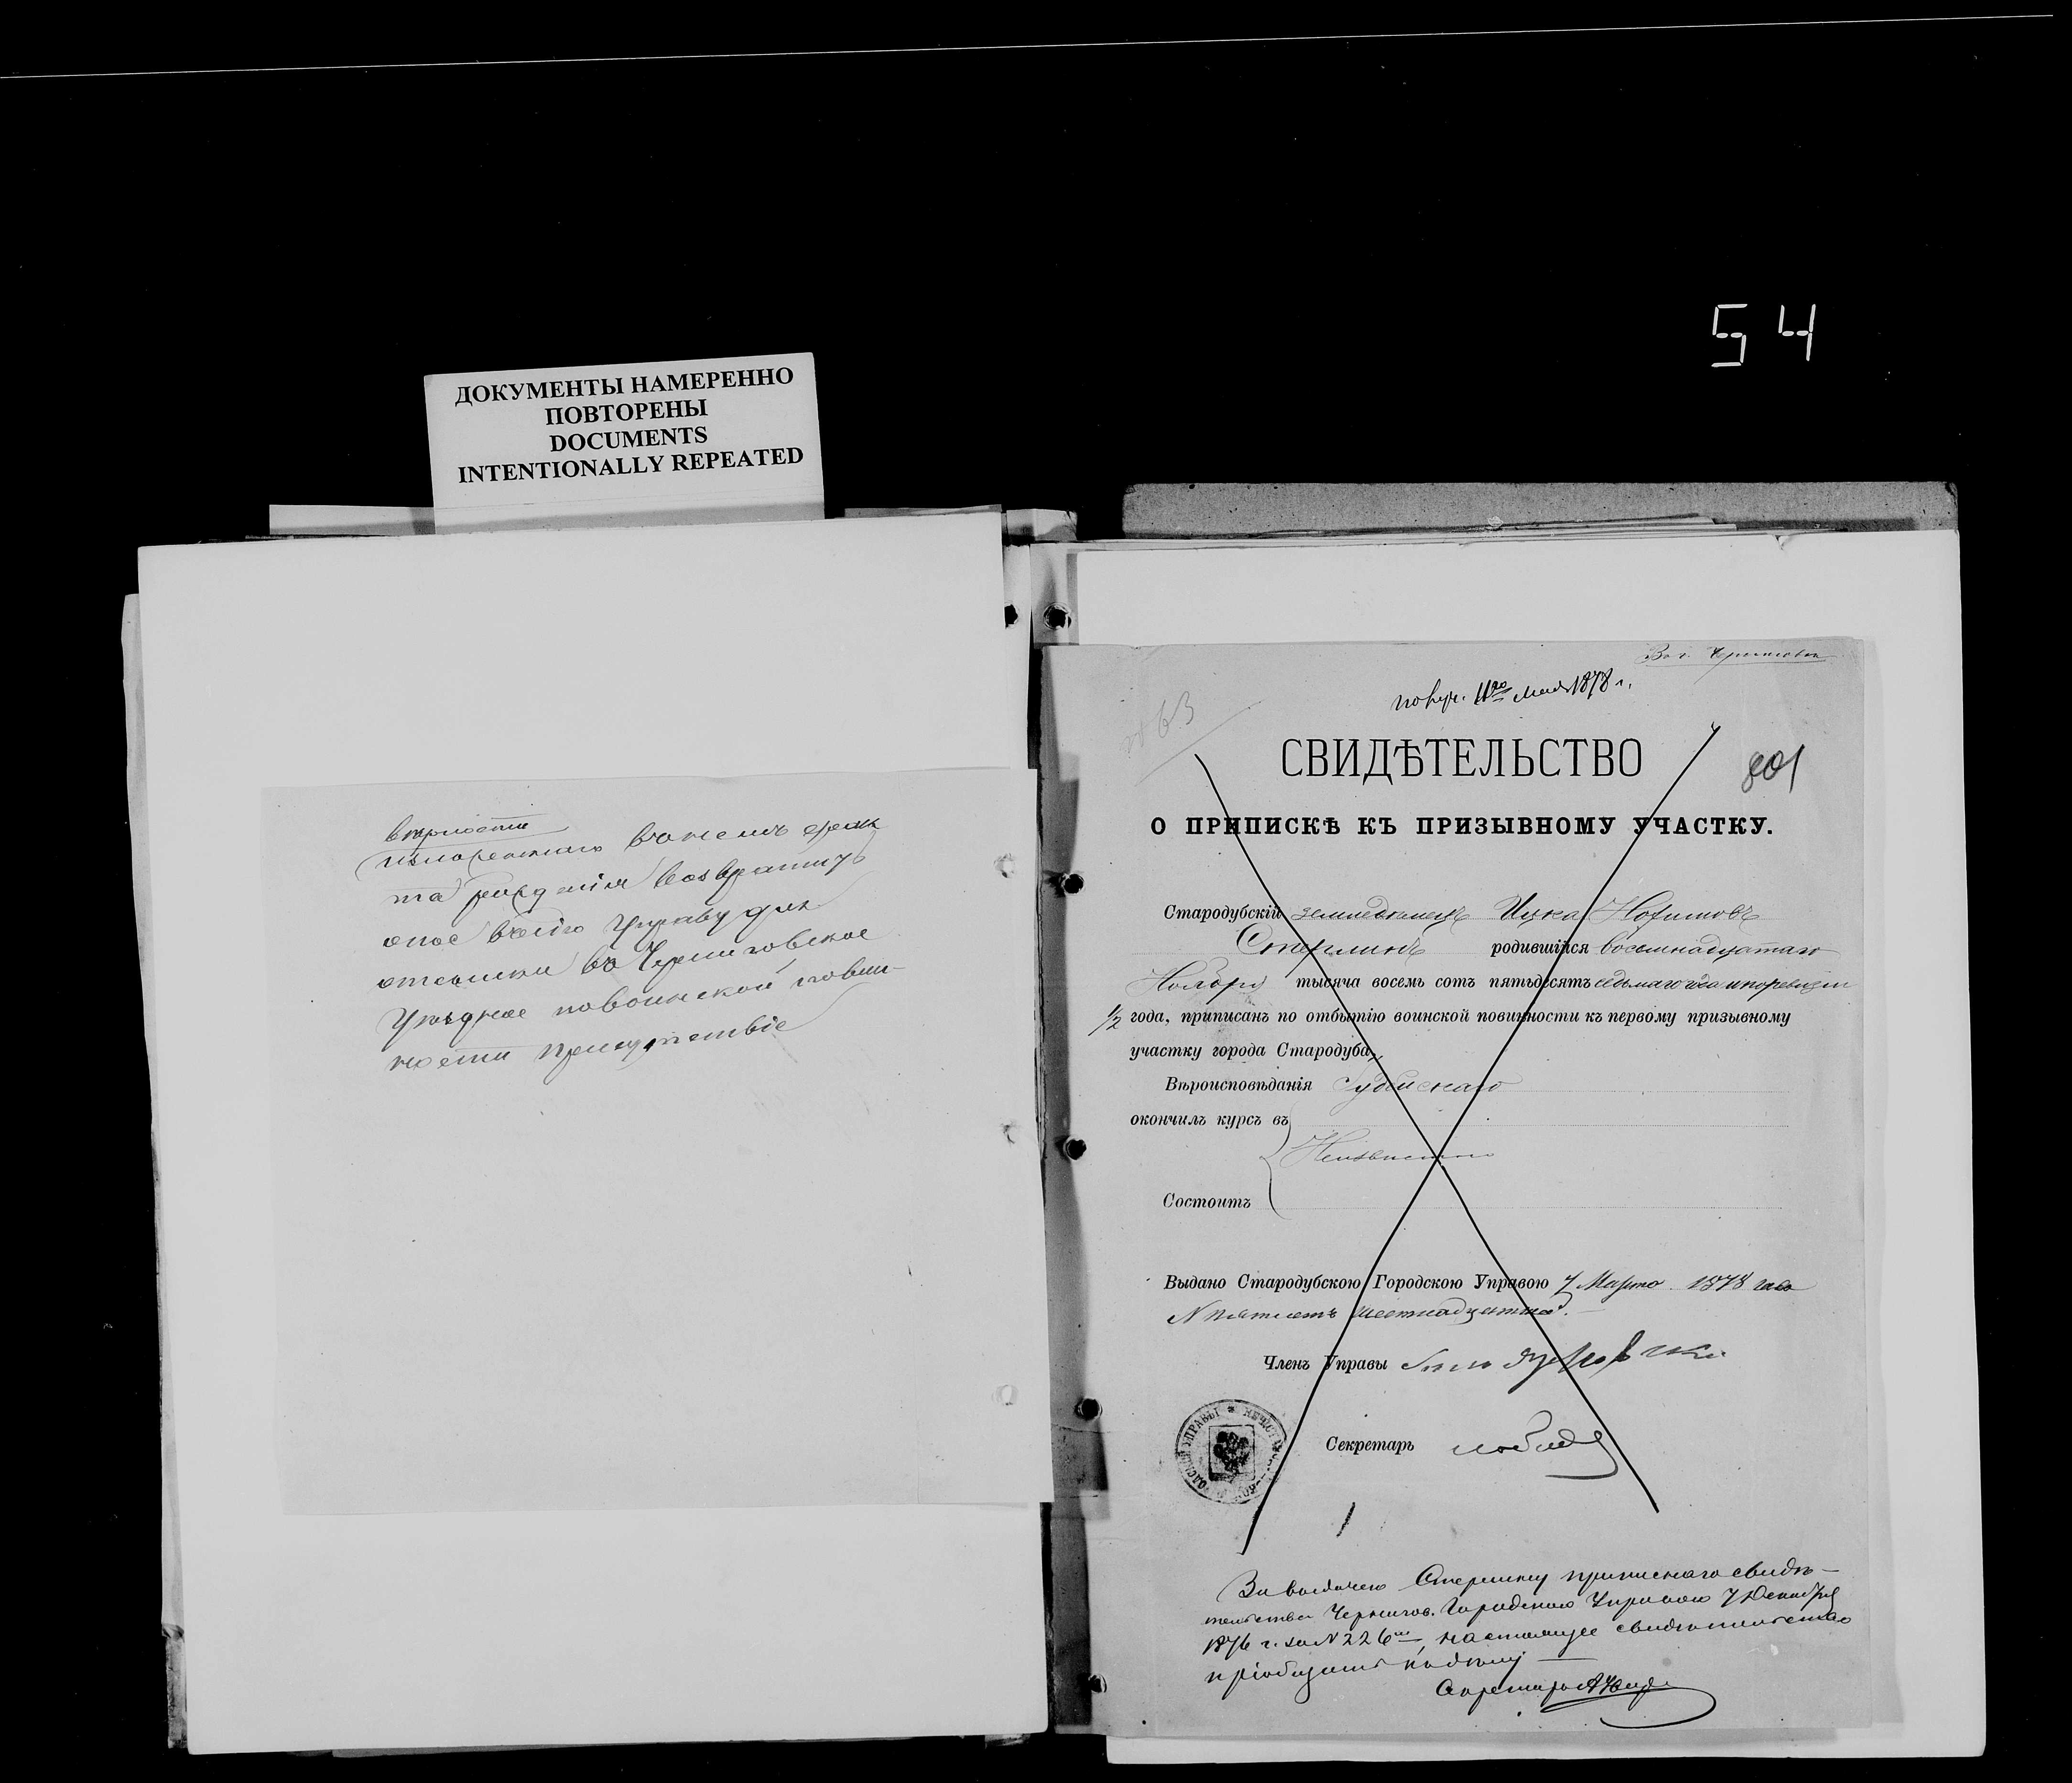 54
ДОКУМЕНТЫ НАМЕРЕННО
ПОВТОРЕНЫ
DOCUMENTS
INTENTIONALLY REPEATED
верности
та рождения возвратить
оное въ сію Управу для
отсылки въ Черниговское
Уѣздное по воинской повин-
ности Присутствіе
Въ г. Черниговъ
получ. 11го мая 1878 г.
№ 63
СВИДѢТЕЛЬСТВО
801
О ПРИПИСКѢ КЪ ПРИЗЫВНОМУ УЧАСТКУ.
Стародубскій земледѣлецъ Ицка
родившійся восемнадцатаго
Ноября тысяча восемь сотъ пятьдесятъ седьмаго
1/2 года, приписанъ по отбытію воинской повинности къ первому призывному
участку города Стародуба,
Вѣроисповѣданія Іудейскаго
окончилъ курсъ въ
Неизвѣстно
Состоитъ
Выдано Стародубскою Городскою Управою 7 Марта 1878 года
N пятьсотъ шестнадцатый.
Членъ Управы
Секретарь
За выдачею приписнаго свидѣ-
тельства Чернигов. Городскою Управою 7 Декабря
1876 г. за N 226мъ, настоящее свидѣтельство
пріобщить къ дѣлу
Секретарь